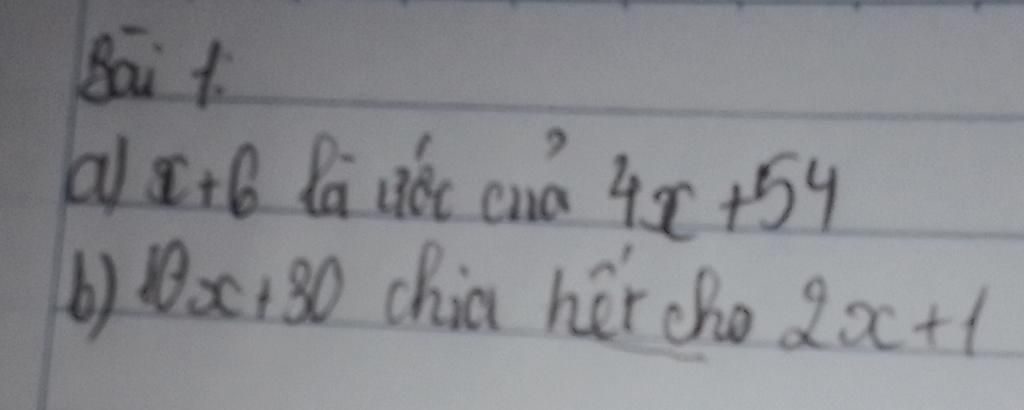 Bài 1:
a) x+6 là ước của 4x+54
b) 10x+30 chia hết cho 2x+1